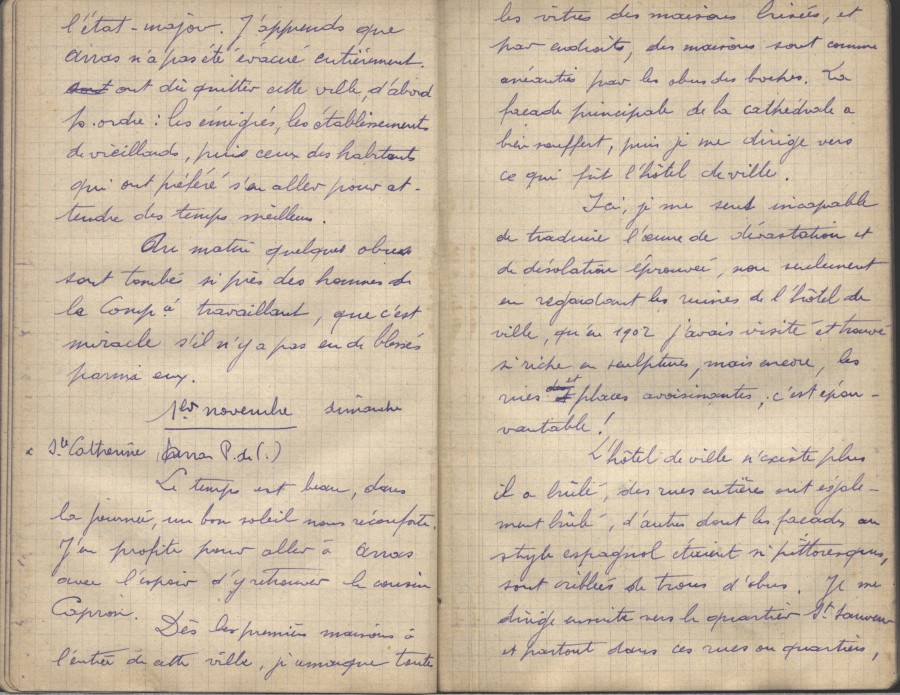 l'état-major. J'apprends que
Arras n'a pas été évacué entièrement.
sont ont dû quitter cette ville, d'abord
p. ordre : les émigrés, les établissements
de vieillards, puis ceux des habitants
qui ont préféré s'en aller pour at-
tendre des temps meilleurs.
Au matin quelques obus
sont tombé si près des hommes de
la Comp à travaillant, que c'est
miracle s'il n'y a pas eu de blessés
parmi eux.
1er novembre dimanche
Ste Catherine Arras P. de C.)
Le temps est beau, dans
la journée, un bon soleil nous réconforte.
J'en profite pour aller à Arras
avec l'espoir d'y retrouver le cousin
Capron.
Dès les premières maisons à
l'entrée de cette ville, je remarque toute
les vitres des maisons brisées, et
par endroits, des maisons sont comme
anéanties par les obus des boches. La
façade principale de la cathédrale a
bien souffert, puis je me dirige vers
ce qui fut l'hôtel de ville.
Ici, je me sens incapable
de traduire l'œuvre de dévastation et
de désolation éprouvée, non seulement
en regardant les ruines de l'hôtel de
ville, qu'en 1902 j'avais visité et trouvé
si riche en sculptures, mais encore, les
rues et places avoisinantes, c'est épou-
vantable !
L'hôtel de ville n'existe plus
il a brûlé, des rues entières ont égale-
ment brûlé, d'autres dont les façades au
style espagnol étaient si pittoresques,
sont criblées de trous d'obus. Je me
dirige ensuite vers le quartier St Sauveur
et partout dans ces rues ou quartiers,